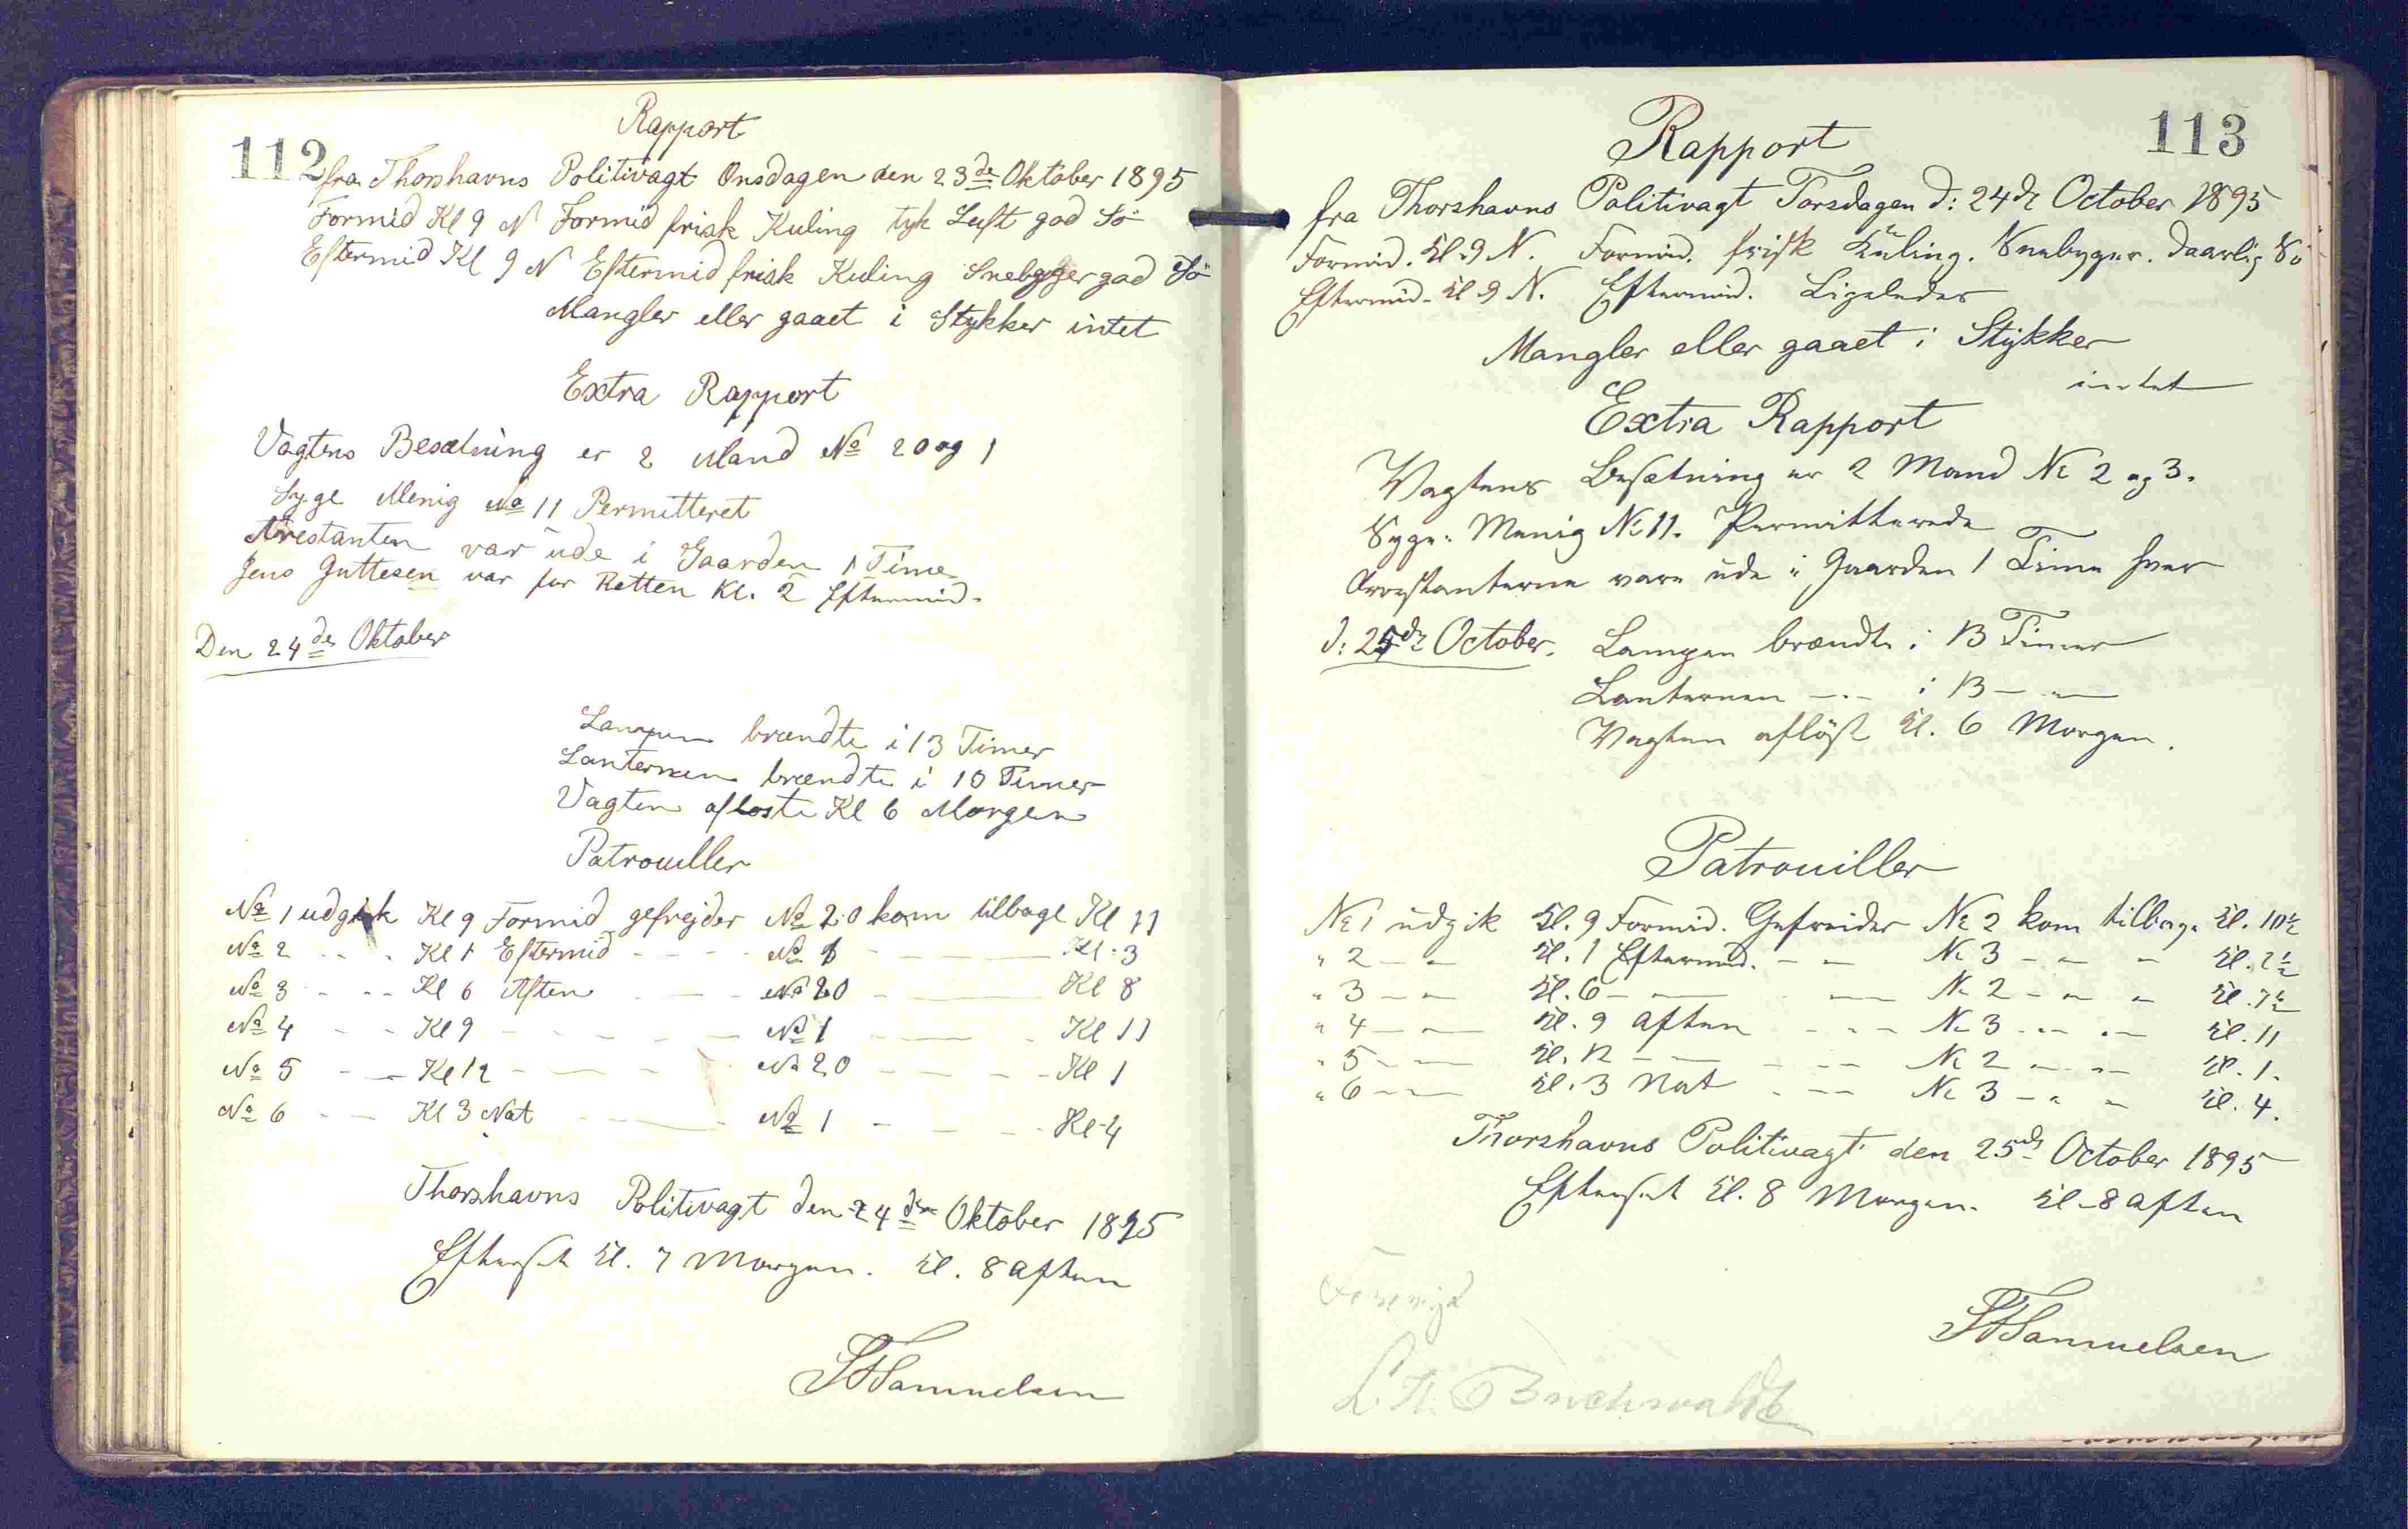 112
Rapport
fra Thorshavns Politivagt Onsdagen den 23de Oktober 1895
Formid Kl 9 N Formid frisk Kuling tyk Luft god Sö
Eftermid Kl 9 N Eftermid frisk Kuling Snebyger god Sö
Mangler eller gaaet i Stykker intet
Extra Rapport
Vagtens Besætning er 2 Mand No 20 og 1
Syge Menig No 11 Permitteret
Arrestanten var ude i Gaarden 1 Time
Jens Guttesen var for Retten Kl. 2 Eftermid.
Den 24de Oktober
Lampen brændte i 13 Timer
Lanternen brændte i 13 Timer
Vagten afloste Kl 6 Morgen
Patrouiller
No 1 udgik Kl 9 Formid gefrejder No 20 kom tilbage Kl 11
No 2 - - - Kl 1 Eftermid - - - - No 1 - - Kl. 3
No 3 - - - Kl 6 Aften - - - No 20 - - Kl 8
No 4 - - Kl 9 - - - - - No 1 - - - Kl 11
No 5 - - Kl 12 - - - No 20 - - - - Kl 1
No 6 - - Kl 3 Nat - - No 1 - - - - Kl 4
Thorshavns Politivagt den 24de Oktober 1895
Efterset Kl. 7 Morgen. Kl. 8 Aften
SFSamuelsen
113
Rapport
fra Thorshavns Politivagt Torsdagen d: 24de October 1895
Formid. Kl. 9 N. Formid. frisk Kuling. Snebyger. daarlig Sö
Eftermid. Kl 9 N. Eftermid. Ligeledes
Mangler eller gaaet i Stykker
intet
Extra Rapport
Vagtens Besætning er 2 Mand No 2 og 3.
Syge: Menig No 11. Permitterede
Arrestanterne vare ude i Gaarden 1 Time hver
d: 25de October. Lampen brændte i 13 Timer
Lanternen - - - i 13 - -
Vagten aflöst Kl. 6 Morgen.
Patrouiller
No 1 udgik Kl. 9 Formid. Gefreider No 2 kom tilbage Kl. 10½
" 2 - - Kl. 1 Eftermid. - - No 3 - - - Kl. 2½
" 3 - - Kl. 6 - - - No 2 - - - Kl. 7½
" 4 - - Kl. 9 Aften - - - No 3 - - - Kl. 11
" 5 - - Kl. 12 - - - - No 2 - - - Kl. 1.
" 6 - - Kl. 3 Nat - - - No 3 - - - Kl. 4.
Thorshavns Politivagt den 25de October 1895
Efterset Kl. 8 Morgen. Kl. 8 Aften
SFSamuelsen
Buchwaldt